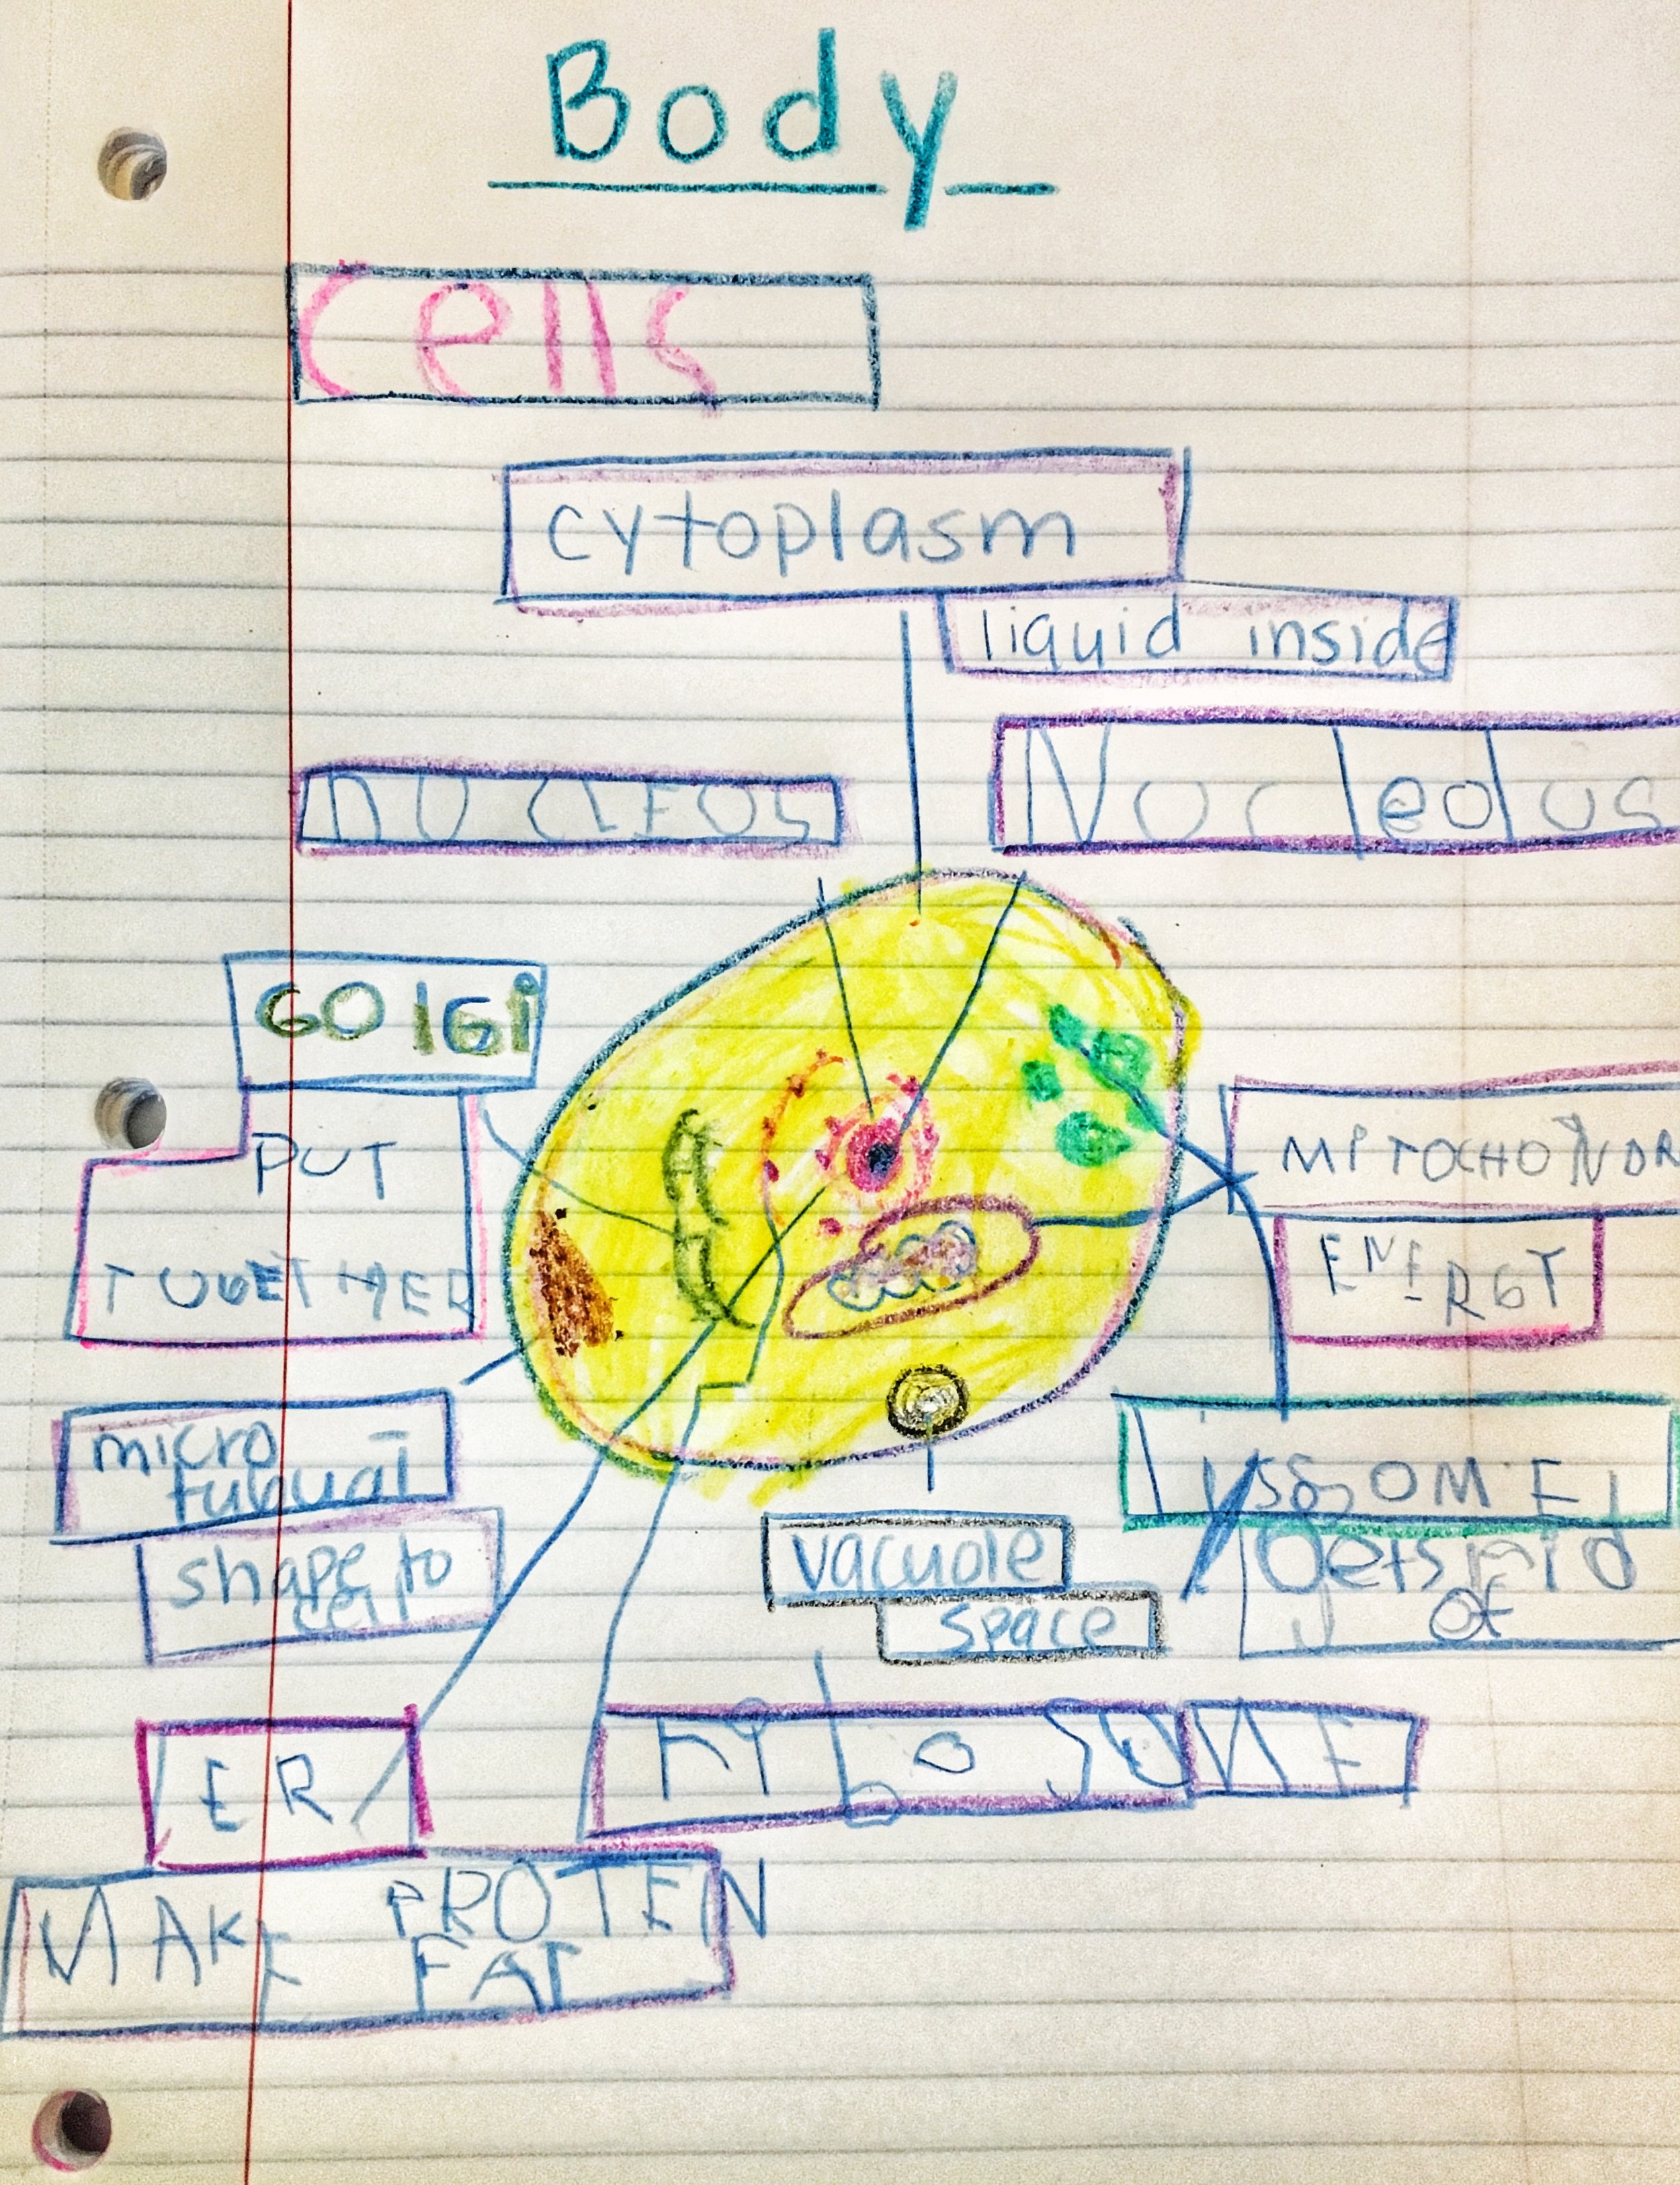 Body
Cells
cytoplasm
liquid inside
NUCLEUS
Nucleolus
GOlGi
PUT
TOGETHER
MITOCHONDR
ENERGY
micro
shape to
cell
vacuole
space
Gets rid
of
ER
MAKE PROTEIN
FAT